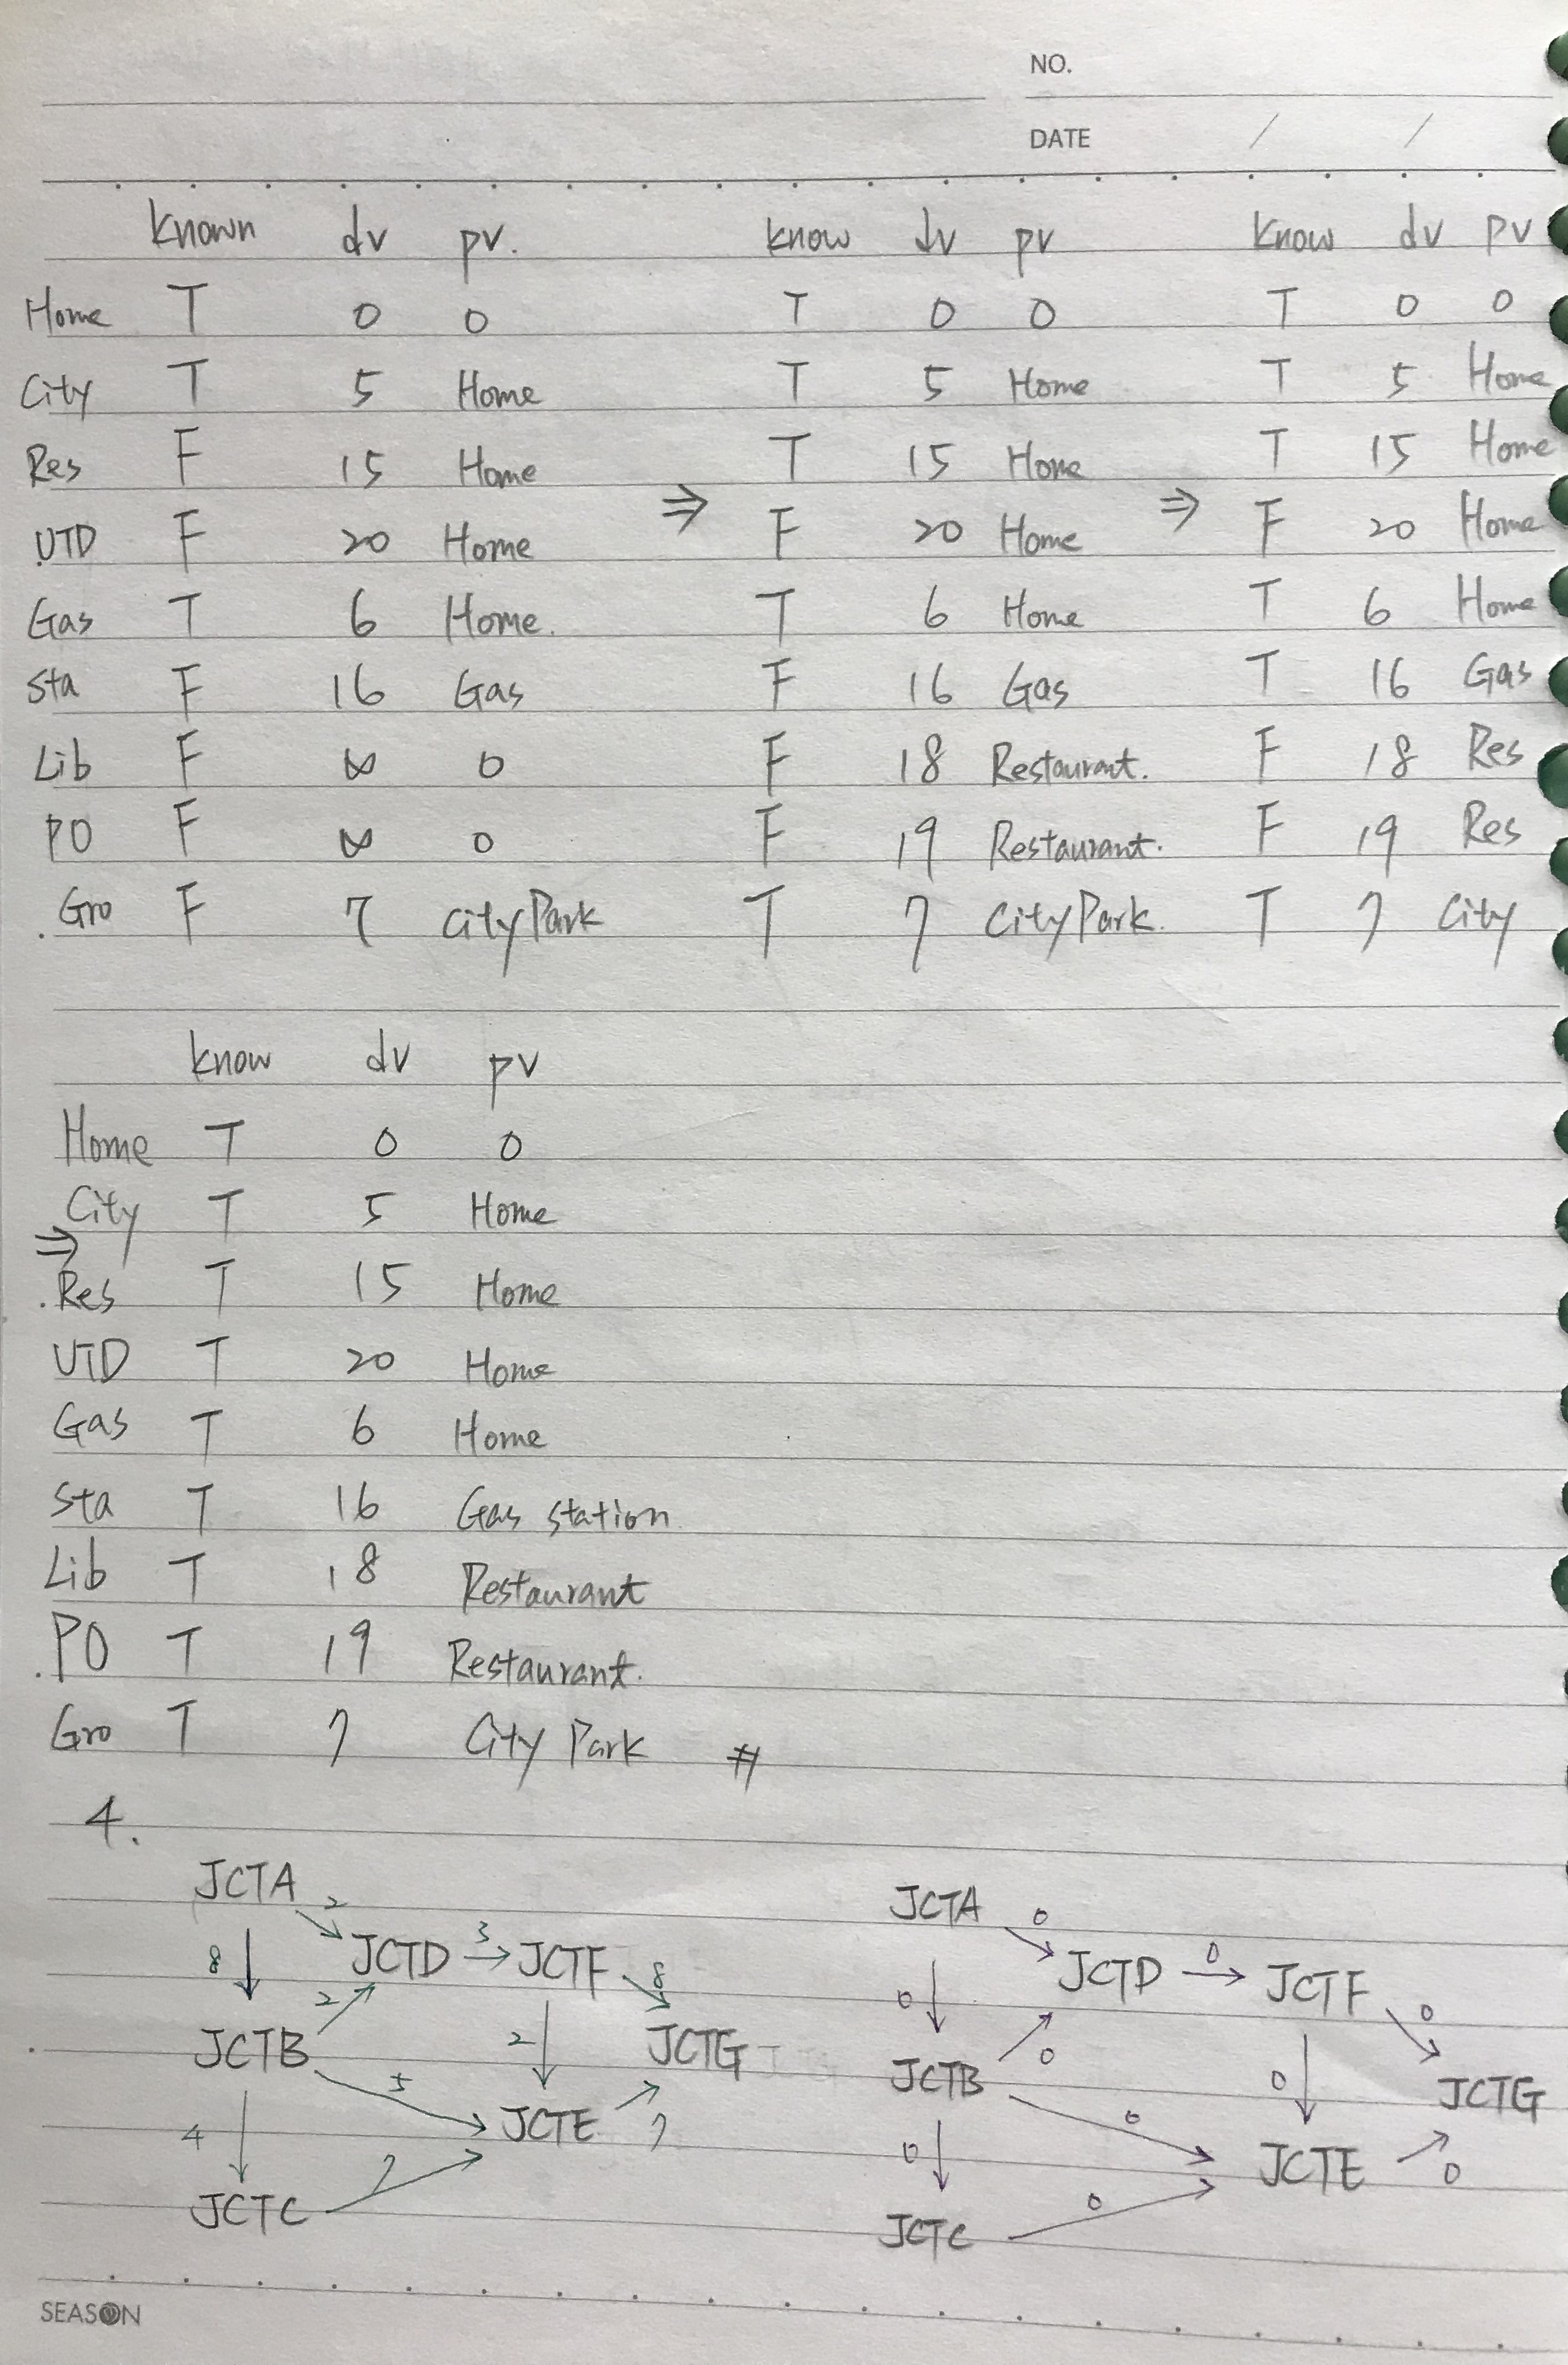 NO.
DATE / /
known dv pv. know dv pv know dv pv
Home T 0 0 T 0 0 T 0 0
City T 5 Home T 5 Home T 5 Home
Res F 15 Home T 15 Home T 15 Home
⇒ ⇒
UTD F 20 Home F 20 Home F 20 Home
Gas T 6 Home. T 6 Home T 6 Home
Sta F 16 Gas F 16 Gas T 16 Gas
Lib F ∞ 0 F 18 Restaurant. F 18 Res
PO F ∞ 0 F 19 Restaurant. F 19 Res
Gro F 7 City Park T 7 City Park. T 7 City
know dv pv
Home T 0 0
City T 5 Home
⇒
Res T 15 Home
UTD T 20 Home
Gas T 6 Home
Sta T 16 Gas station
Lib T 18 Restaurant
PO T 19 Restaurant.
Gro T 7 City Park #
4.
JCTA 2 JCTA 0
8 JCTD 3 JCTF 8 0 JCTD 0 JCTF 0
2 0
JCTB 2 JCTG JCTB 0 JCTG
5 0
4 JCTE 7 0 JCTE 0
7 0
JCTC JCTC
SEASON